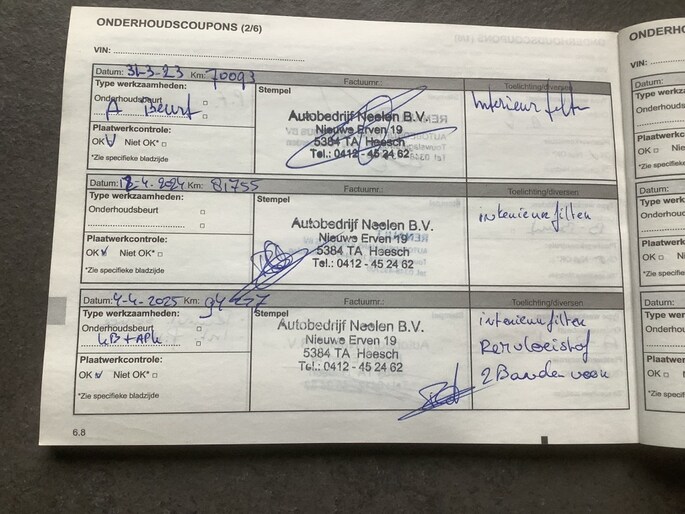 ONDERHOUDSCOUPONS (2/6)
VIN:
Datum: 31-3-23 Km: 70093 Factuurnr.: Toelichting/diversen
Type werkzaamheden: Stempel Interieur filter
Onderhoudsbeurt
A Beurt
Plaatwerkcontrole:
OK Niet OK*
*Zie specifieke bladzijde
Autobedrijf Neelen B.V.
Nieuwe Erven 19
5384 TA Heesch
Tel.: 0412 - 45 24 62
Datum: 12-4-2024 Km: 81755 Factuurnr.: Toelichting/diversen
Type werkzaamheden: Stempel interieurfilter
Onderhoudsbeurt
Plaatwerkcontrole:
OK Niet OK*
*Zie specifieke bladzijde
Autobedrijf Neelen B.V.
Nieuwe Erven 19
5384 TA Heesch
Tel.: 0412 - 45 24 62
Datum: 4-4-2025 Km: Factuurnr.: Toelichting/diversen
Type werkzaamheden: Stempel interieurfilter
Onderhoudsbeurt Remvloeistof
+ APK 2 Banden voor
Plaatwerkcontrole:
OK Niet OK*
*Zie specifieke bladzijde
Autobedrijf Neelen B.V.
Nieuwe Erven 19
5384 TA Heesch
Tel.: 0412 - 45 24 62
6.8
VIN:
Datum:
Type werkzaamheden
Onderhoudsbeurt
Plaatwerkcontrole:
OK Niet OK
*Zie specifieke
Datum:
Type werkzaamheden
Onderhoudsbeurt
Plaatwerkcontrole:
OK Niet OK
*Zie specifieke
Datum:
Type werkzaamheden
Onderhoudsbeurt
Plaatwerkcontrole
OK Niet OK
*Zie specifieke